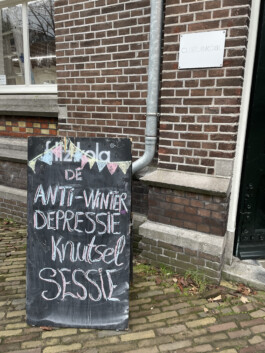 fritzkola
DE
ANTI-WINTER
DEPRESSIE
Knutsel
SESSIE